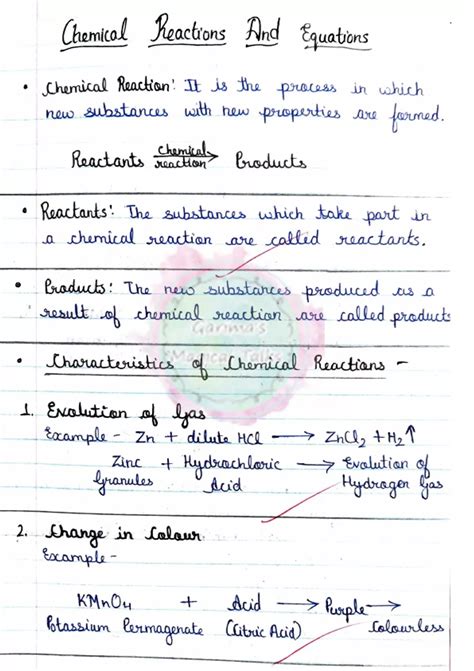 Chemical Reactions And Equations
• Chemical Reaction: It is the process in which
new substances with new properties are formed.
Reactants Chemical reaction → Products
• Reactants: The substances which take part in
a chemical reaction are called reactants.
• Products: The new substances produced as a
result of chemical reaction are called products
Garima's
Magical Talks
• Characteristics of Chemical Reactions -
1. Evolution of Gas
Example - Zn + dilute HCl → ZnCl2 + H2↑
Zinc + Hydrochloric → Evolution of
Granules Acid Hydrogen Gas
2. Change in Colour
Example -
KMnO4 + Acid → Purple →
Potassium Permagenate (Citric Acid) Colourless